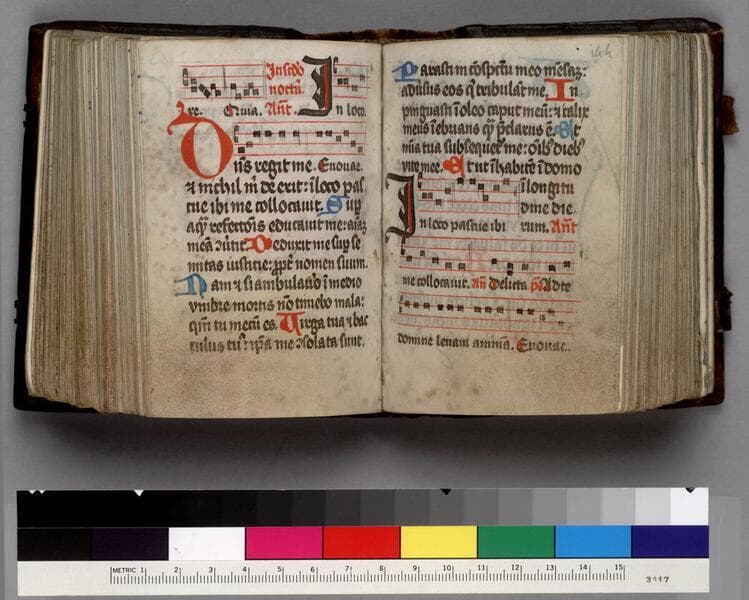 In scdo
noctu.
re. Euia. Ant. In loco
Dns regit me. Euouae.
et nichil m de erit: i loco pas
cue ibi me collocauit. Sup
aqu refectois educauit me: aiaz
mea ouertit. Deduxit me sup se
mitas iusticie: ppt nomen suum.
Nam et si ambulauo i medio
vmbre mortis no timebo mala:
qm tu mecu es. Virga tua et bac
culus tuus ipa me osolata sunt.
Parasti in ospectu meo mesaz:
aduersus eos q tribulant me. In
pinguasti i oleo caput meu: et calix
meus iebrians q pclarus e. Et
mia tua subsequet me: oib dieb
vite mee. Et ut ihabite i domo
i longitu
dine die
In loco pascue ibi rum. Ant
me collocauit. An Delicta ps Ad te
domine leuaui anima. Euouae.
METRIC 1 2 3 4 5 6 7 8 9 10 11 12 13 14 15